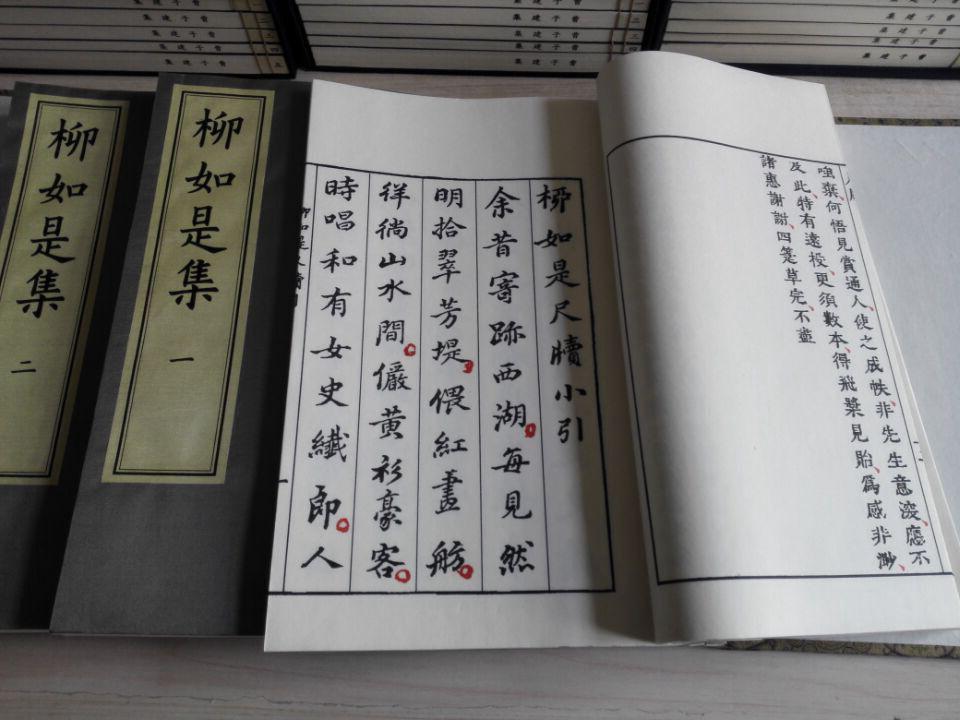 曹子建集
曹子建集
曹子建集
柳如是集
一
柳如是集
二
意深、應不
嗤棄、何悟見賞通人、使之成帙、非先生
及此、特有遠投、更須數本、得飛槳見貽、爲感非渺、
諸惠謝謝、四箑草完、不盡
柳如是尺牘小引
余昔寄跡西湖。每見然
明拾翠芳堤。偎紅畫舫。
徉徜山水間。儼黃衫豪客。
時唱和有女史纖郎。人